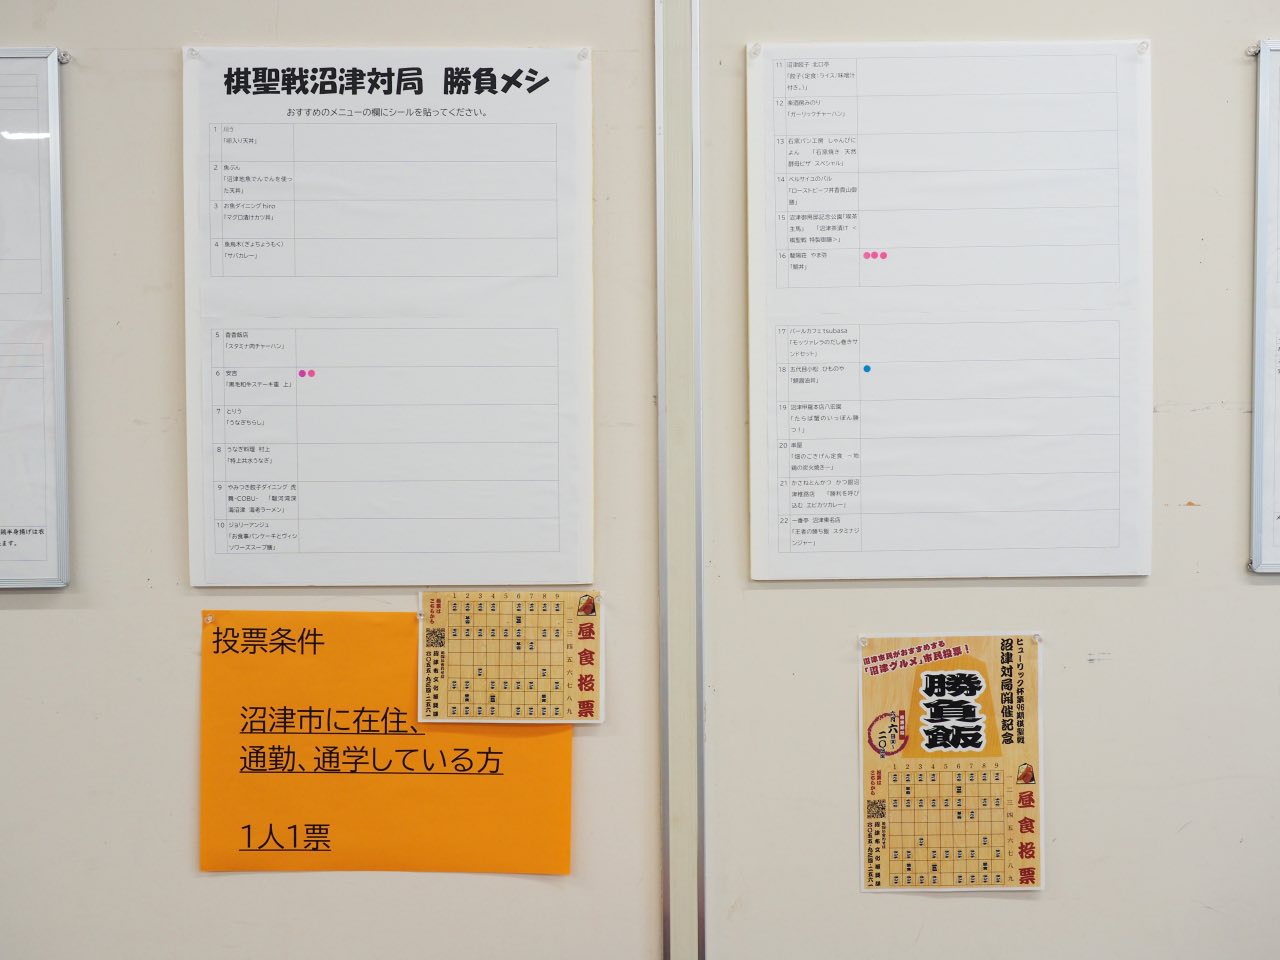 棋聖戦沼津対局 勝負メシ
おすすめのメニューの欄にシールを貼ってください。
1 川う
「卵入り天丼」
2 魚ぶん
「沼津地魚でんでんを使っ
た天丼」
3 お魚ダイニングhiro
「マグロ漬けカツ丼」
4 魚鳥木(ぎょちょうもく)
「サバカレー」
5 香香飯店
「スタミナ肉チャーハン」
6 安吉
「黒毛和牛ステーキ重 上」
7 とりう
「うなぎちらし」
8 うなぎ料理 村上
「特上共水うなぎ」
9 やみつき餃子ダイニング 虎
舞-COBU- 「駿河湾深
海沼津 海老ラーメン」
10 ジョリーアンジュ
「お食事パンケーキとヴィシ
ソワーズスープ膳」
11 沼津餃子 北口亭
「餃子(定食:ライス/味噌汁
付き。)」
12 楽酒房みのり
「ガーリックチャーハン」
13 石窯パン工房 しゃんぴに
よん 「石窯焼き 天然
酵母ピザ スペシャル」
14 ベルサイユのバル
「ローストビーフ丼香貫山御
膳」
15 沼津御用邸記念公園「喫茶
主馬」 「沼津茶漬け <
棋聖戦 特製御膳>」
16 駿陽荘 やま弥
「鯛丼」
17 バールカフェtsubasa
「モッツァレラのだし巻きサ
ンドセット」
18 五代目小松 ひものや
「鯵醤油丼」
19 沼津甲羅本店八宏園
「たらば蟹のいっぽん勝
つ!」
20 串屋
「畑のごきげん定食 -地
鶏の炭火焼き-」
21 かさねとんかつ かつ銀沼
津椎路店 「勝利を呼び
込む エビカツカレー」
22 一番亭 沼津東名店
「王者の勝ち飯 スタミナジ
ンジャー」
投票条件
沼津市に在住、
通勤、通学している方
1人1票
昼食投票
投票は
こちらから
1 2 3 4 5 6 7 8 9
一 二 三 四 五 六 七 八 九
ヒューリック杯第96期棋聖戦
沼津対局開催記念
沼津市民がおすすめする
「沼津グルメ」市民投票!
勝負飯
昼食投票
投票は
こちらから
1 2 3 4 5 6 7 8 9
一 二 三 四 五 六 七 八 九
鶏半身揚げは衣
ます。